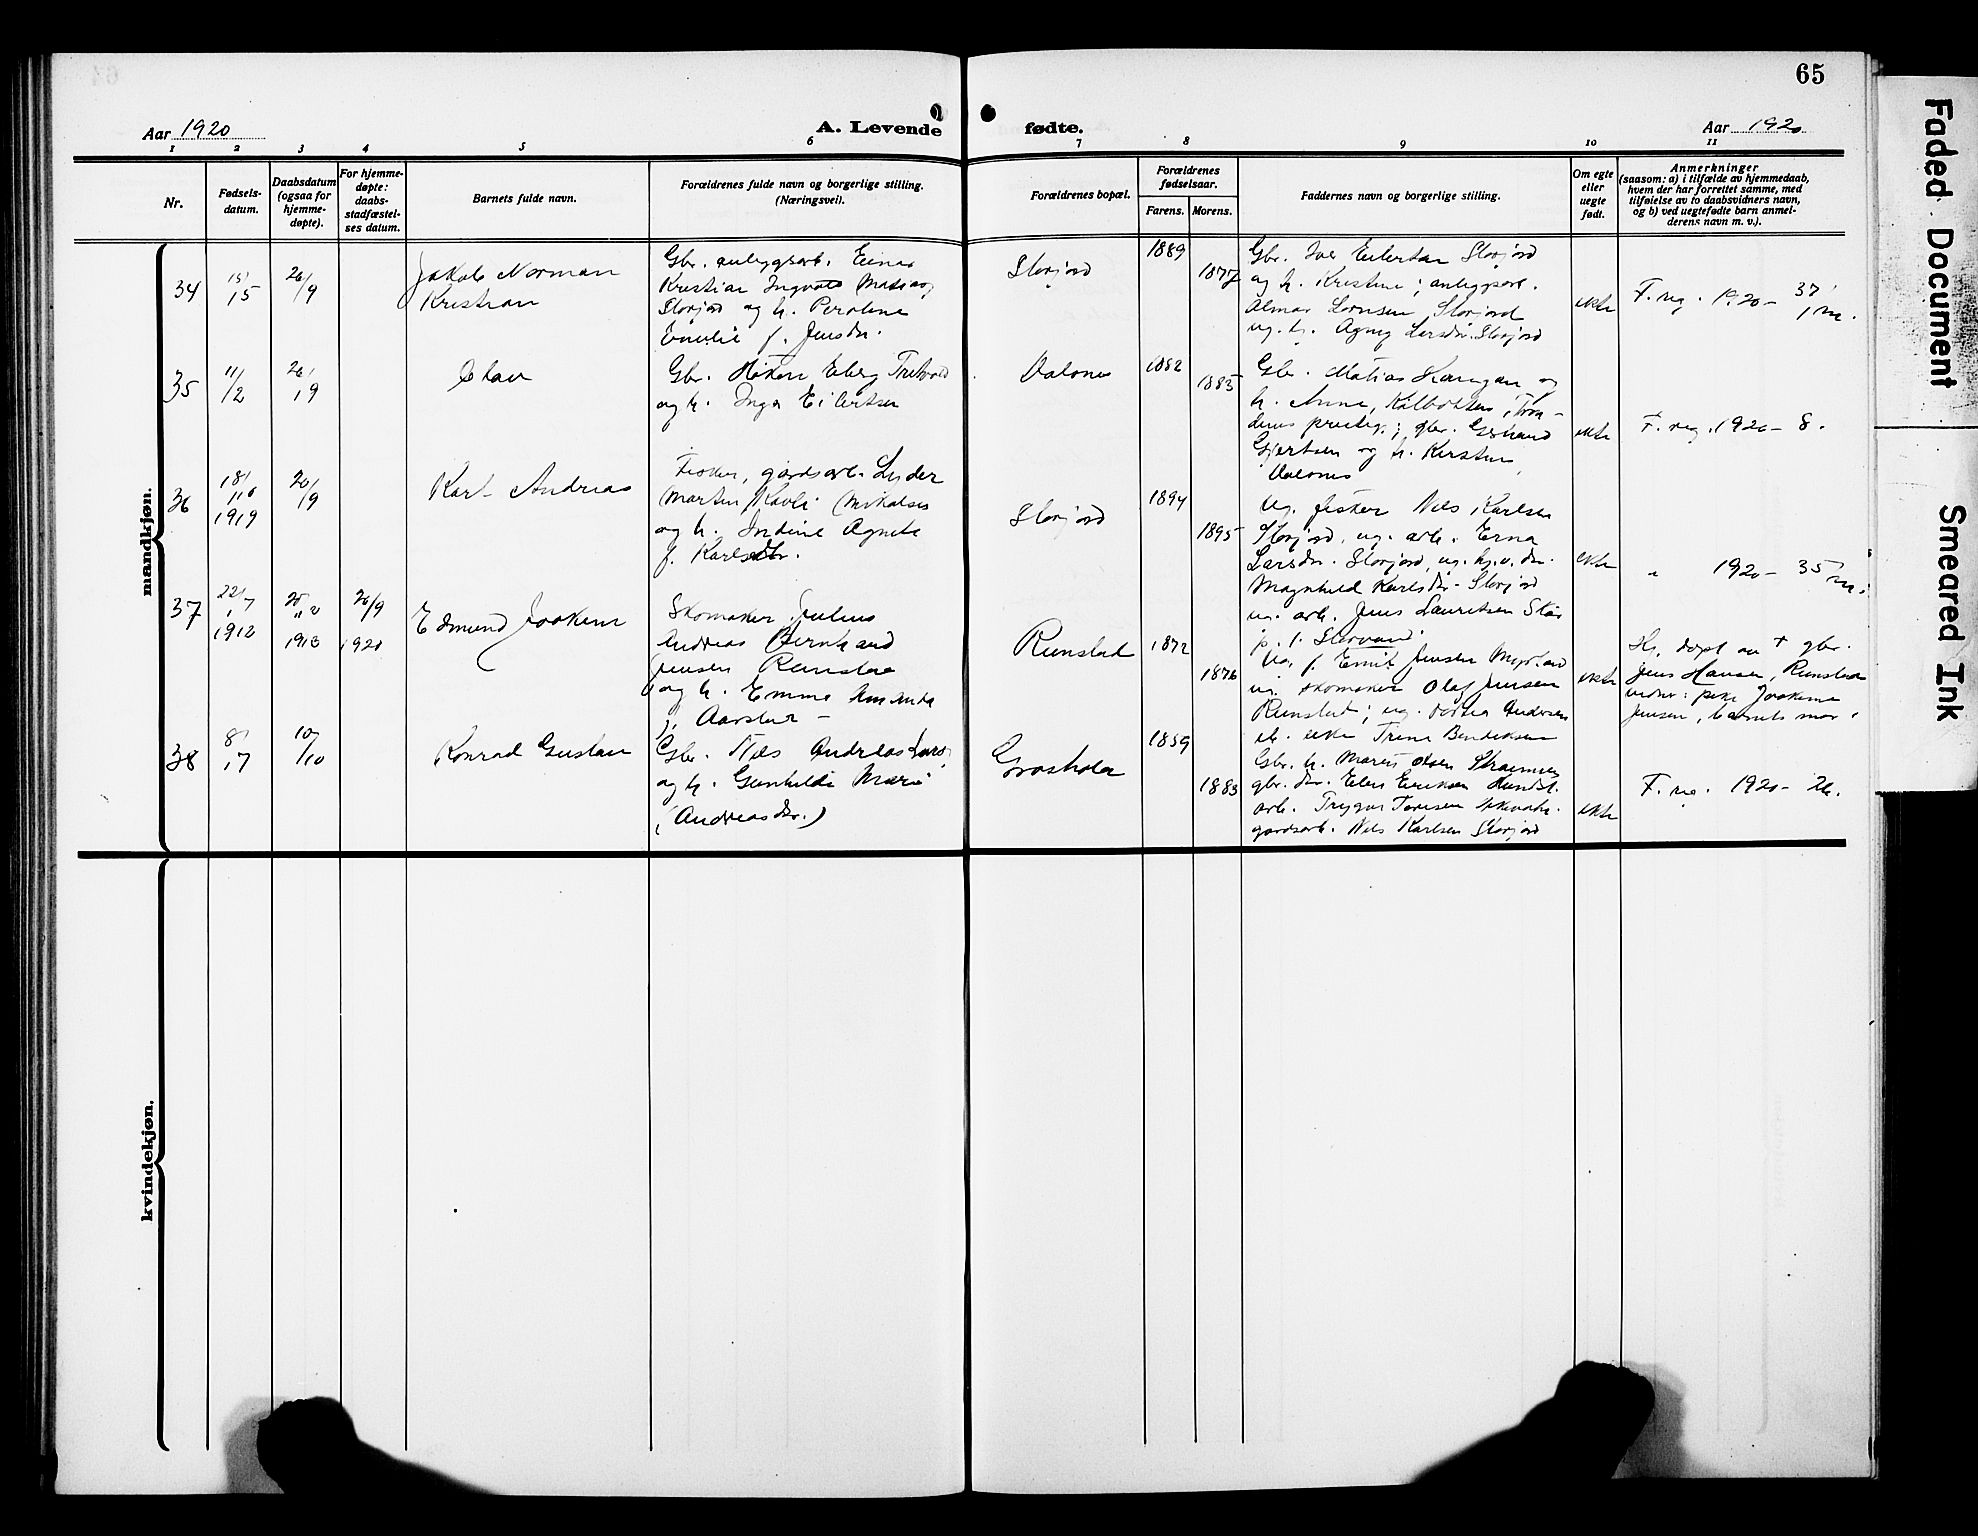 65
Aar 1920
A. Levende fødte.
Aar 1920
1 2 3 4 5 6 7 8 9 10 11
Nr.
Fødsels-
datum.
Daabsdatum
(ogsaa for
hjemme-
døpte).
For hjemme-
døpte:
daabs-
stadfæstel-
ses datum.
Barnets fulde navn.
Forældrenes fulde navn og borgerlige stilling.
(Næringsvei).
Forældrenes bopæl.
Forældrenes
fødselsaar.
Farens. Morens.
Faddernes navn og borgerlige stilling.
Om egte
eller
uegte
født.
Anmerkninger
(saasom: a) i tilfælde av hjemmedaab,
hvem der har forrettet samme, med
tilføielse av to daabsvidners navn,
og b) ved uegtefødte barn anmel-
derens navn m. v.).
mandkjøn.
34
15/5
26/9
Jakob Norman
Kristian
Gbr. anlegsarb. Einar
Kristian Ingvald
Storjord og h. Peroline
Emelie f. Jensdr.
Storjord
1889
1877
Gbr. Eilertsen Storjord
og h. Kristine; anlegsarb.
Almar Storjord
ug. h. Agny Larsdr. Storjord
ekte
F. reg. 1920 - 37
35
11/2
26/9
Johan
Gbr. Håkon Eberg
og h. Inga Eilertsen
Valones
1882
1885
Gbr. Matias
h. Anna,
gbr. Gerhard
Gjertsen og h. Kirstine
Valones
ekte
F. reg. 1920 - 8.
36
18/10
1919
26/9
Karl Andreas
Fisker, gårdsarb. Lyder
Martin Mikalsen
og h. Indine Agnete
f. Karlsdtr.
Storjord
1894
1895
Ug. fisker Nils Karlsen
Storjord, ug. arb. Erna
Larsdr. Storjord, ug.
Magnhild Karlsdr. Storjord
ug. arb. Jens Lauritsen
p. t. Storvand
ekte
" 1920 - 35
37
22/7
1912
1913
26/9
1920
Edmund Joakim
Skomaker Julius
Andreas Bernhard
Jensen Runstad
og h. Emma Amanda
f. Aarstad -
Runstad
1872
1876
Ug. f. Emil Jensen
ug. skomaker Olaf Jensen
Runstad; ug. Andersen
enke Trina Bendiksen
ekte
Hj. døpt av gbr.
Jens Hansen, Runstad
vidner: pike Joakima
Jensen, barnets mor.
38
8/7
10/10
Konrad Gustav
Gbr. Nils Andreas Lars
og h. Gunhilda Marie
(Andreasdr.)
1859
1883
Gbr. h. Marit Olsen
gbr. Eriksen
arb. Trygve
gårdsarb. Nils Karlsen Storjord
ekte
F. reg. 1920 - 26.
kvindekjøn.
Faded Document
Smeared Ink